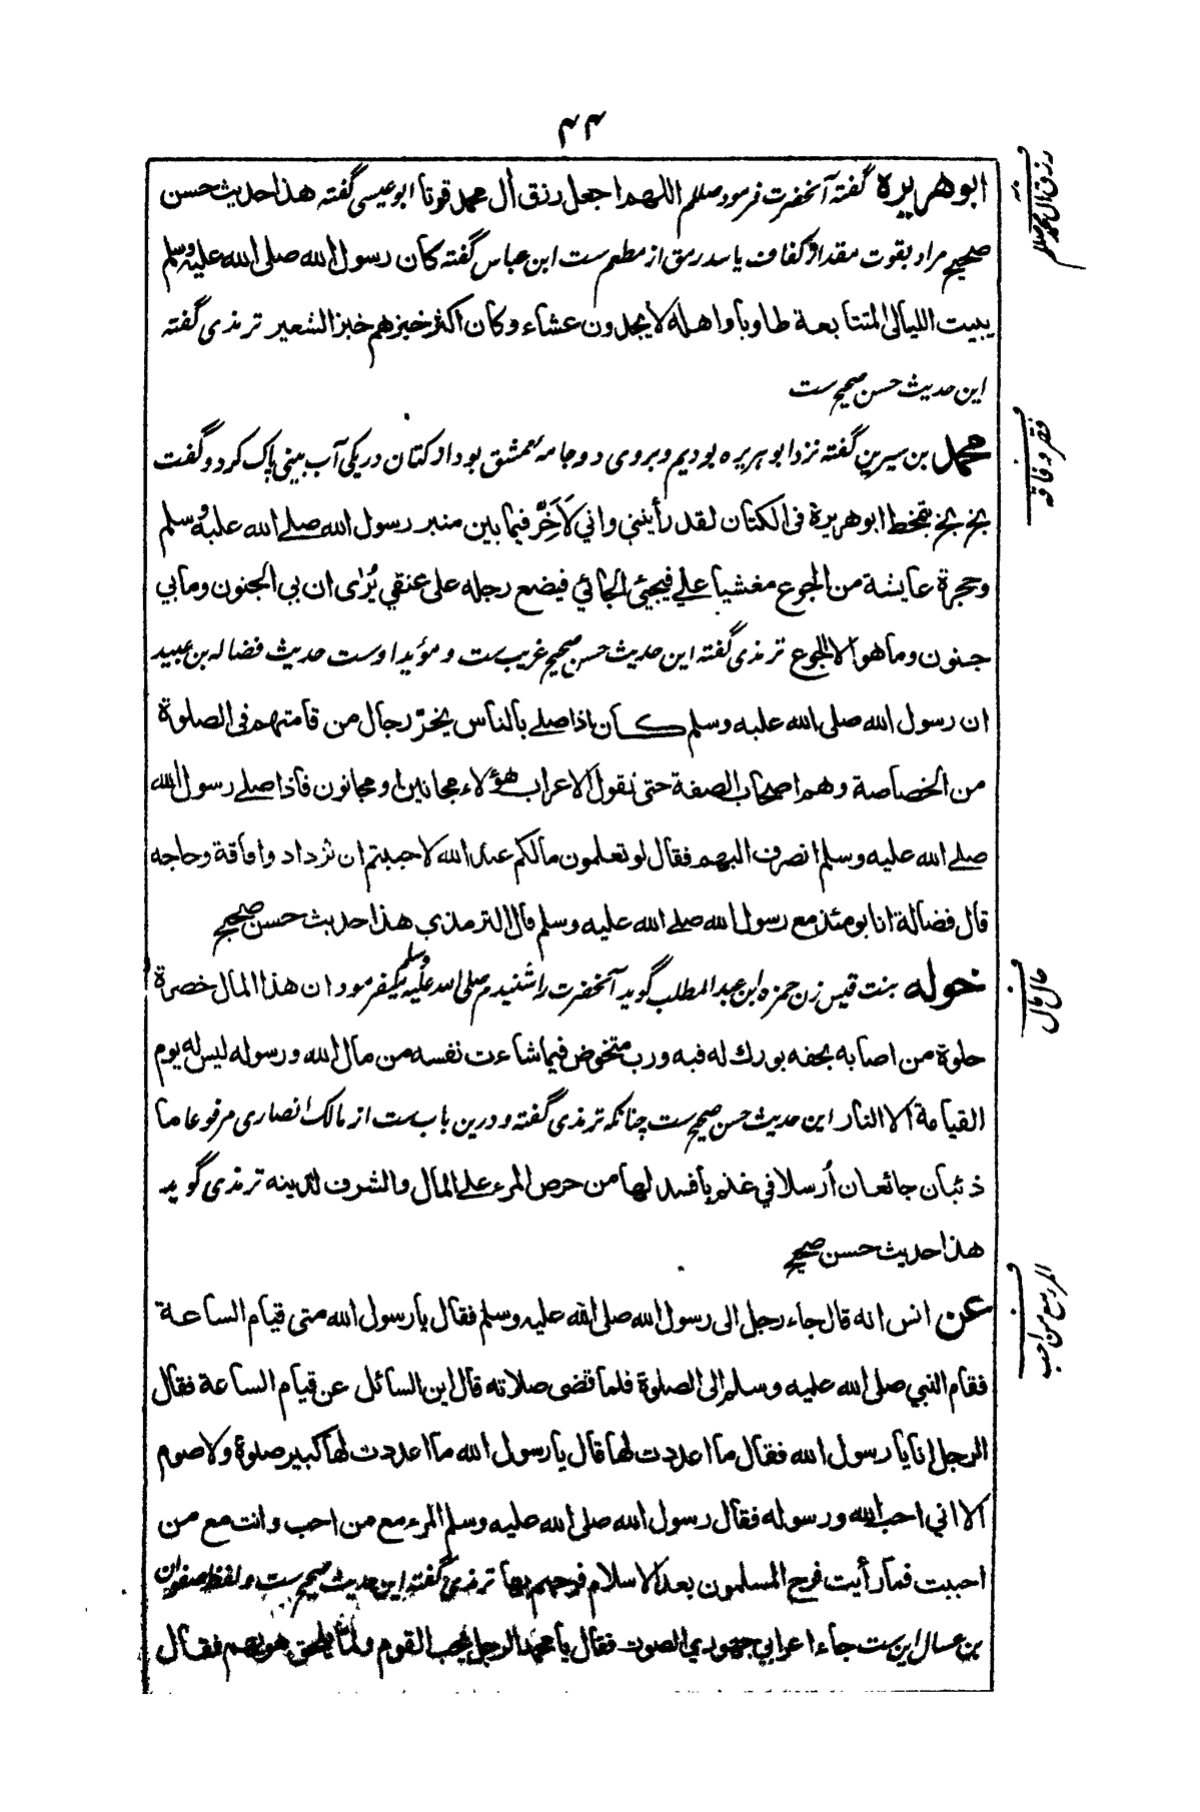 ۴۴
ابوهريره گفته آنحضرت فرمود صللم اللهم اجعل رزق آل محمد قوتا ابو عيسى گفته هذا حديث حسن
صحيح مراد بقوت مقدار كفاف يا سد رمق از مطعم ست ابن عباس گفته كان رسول الله صلى الله عليه وسلم
يبيت الليالى المتتابعة طاويا واهله لا يجدون عشاء وكان اكثر خبزهم خبز الشعير ترمذى گفته
اين حديث حسن صحيح ست
محمد بن سيرين گفته نزد ابو هريره بوديم و بروى دو جامه ممشق بود از كتان در يكى آب بينى پاك كرد و گفت
بخ بخ يتمخط ابوهريرة فى الكتان لقد رأيتني واني لاَخِرُّ فيما بين منبر رسول الله صلے الله عليه وسلم
وحجرة عايشة من الجوع مغشيا علي فيجيئ الجائي فيضع رجله على عنقي يُرٰى ان بي الجنون وما بي
جنون وما هو الا الجوع ترمذى گفته اين حديث حسن صحيح غريب ست و مؤيد اوست حديث فضاله بن عبيد
ان رسول الله صلى الله عليه وسلم كان اذا صلے بالناس يخرّ رجال من قامتهم فى الصلوة
من الخصاصة وهم اصحاب الصفة حتى تقول الاعراب هؤلاء مجانين او مجانون فاذا صلے رسول الله
صلے الله عليه وسلم انصرف اليهم فقال لو تعلمون ما لكم عند الله لاحببتم ان تزدادوا فاقة وحاجه
قال فضالة انا يومئذ مع رسول الله صلے الله عليه وسلم قال الترمذي هذا حديث حسن صحيح
خوله بنت قيس زن حمزه ابن عبد المطلب گويد آنحضرت را شنيدم صلى الله عليه وسلم ميفرمود ان هذا المال خضرة
حلوة من اصابه بحقه بورك له فيه ورب متخوض فيما شاءت نفسه من مال الله ورسوله ليس له يوم
القيامة الا النار اين حديث حسن صحيح ست چنانكه ترمذى گفته و درين باب ست از مالك انصارى مرفوعا ما
ذئبان جائعان اُرسلا في غنم بافسد لها من حرص المرء على المال والشرف لدينه ترمذى گويد
هذا حديث حسن صحيح
عن انس انه قال جاء رجل الى رسول الله صلى الله عليه وسلم فقال يا رسول الله متى قيام الساعة
فقام النبي صلى الله عليه وسلم الى الصلوة فلما قضى صلاته قال اين السائل عن قيام الساعة فقال
الرجل انا يا رسول الله فقال ما اعددت لها قال يا رسول الله ما اعددت لها كبير صلوة ولا صوم
الا اني احب الله ورسوله فقال رسول الله صلى الله عليه وسلم المرء مع من احب وانت مع من
احببت فما رأيت فرح المسلمون بعد الاسلام فرحهم بها ترمذى گفته اين حديث صحيح ست و لفظ صفوان
بن عسال اين ست جاء اعرابي جهوري الصوت فقال يا محمد الرجل يحب القوم ولما يلحق هو بهم فقال
رزق آل محمد صللم
فقر و فاقه
حال مال
المرء مع من احب